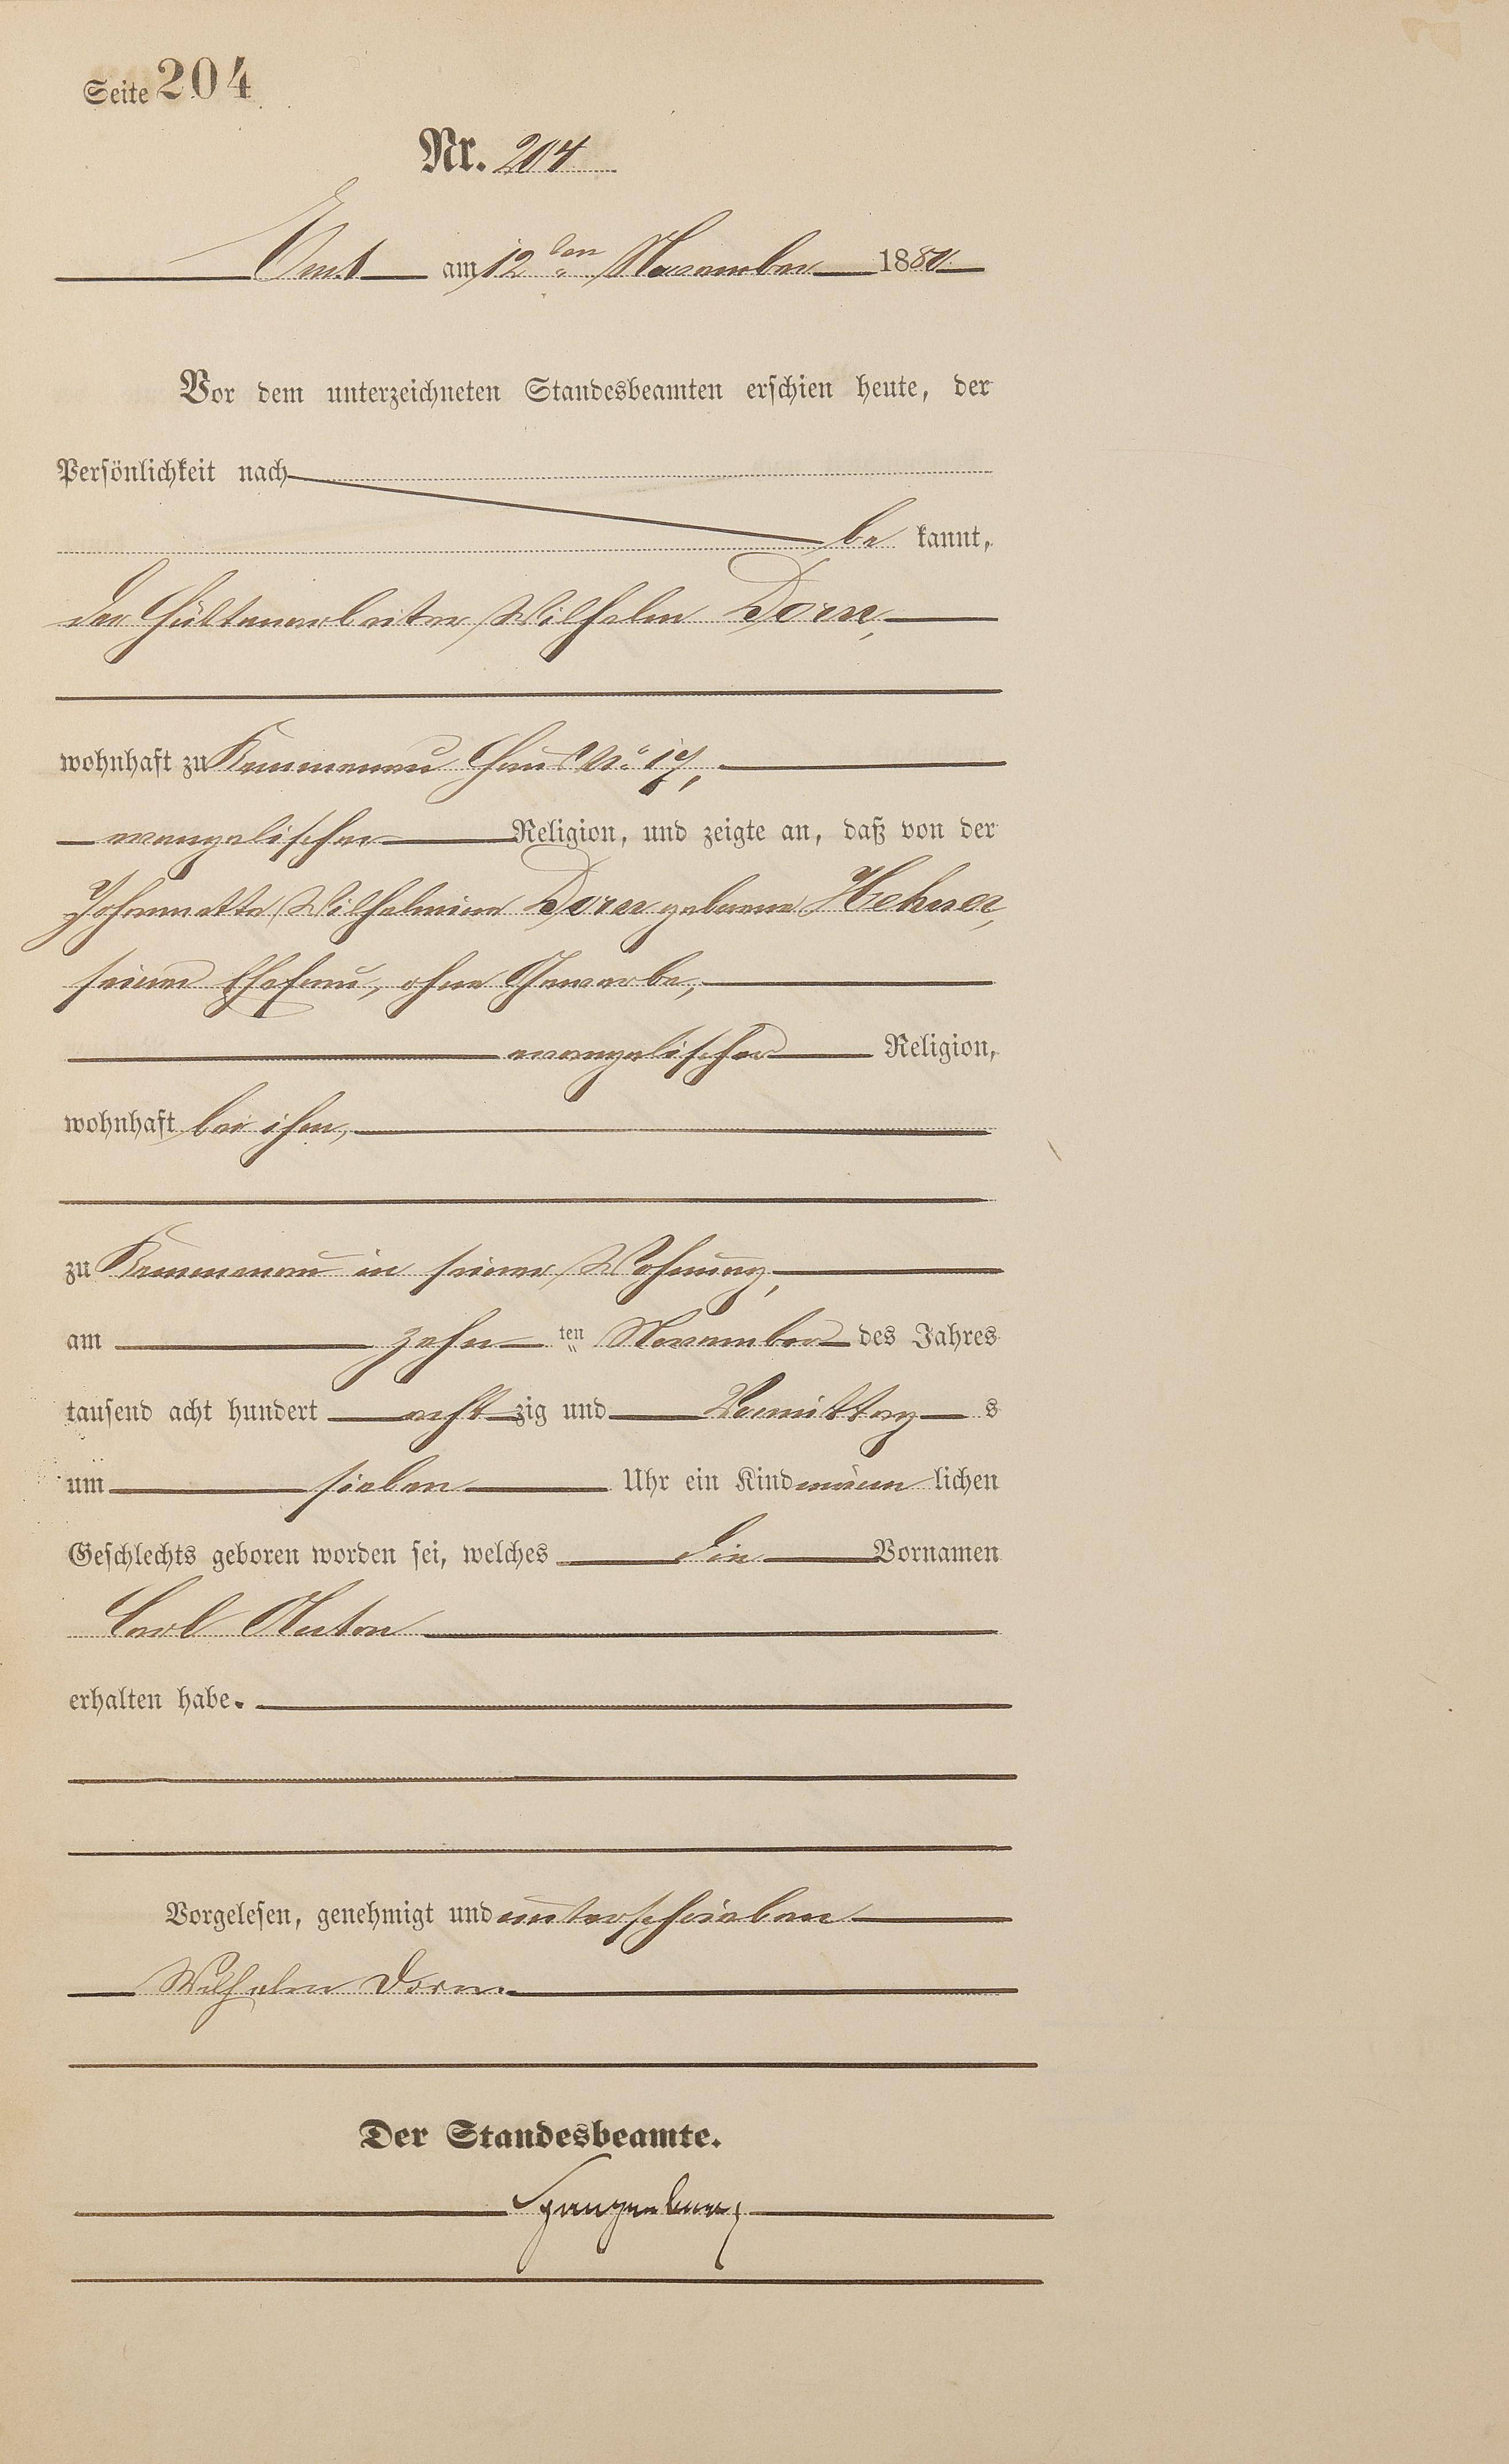 Seite 204
Nr. 204
Ems am 12ten November 1880
Vor dem unterzeichneten Standesbeamten erschien heute, der
Persönlichkeit nach
be kannt,
der Hüttenarbeiter Wilhelm Dorn,
wohnhaft zu Kemmenau Haus No. 17,
evangelischer Religion, und zeigte an, daß von der
Johannette Wilhelmine Dorn geborene Hehner,
seiner Ehefrau, ohne Gewerbe,
evangelischer Religion,
wohnhaft bei ihm,
zu Kemmenau in seiner Wohnung,
am zehn ten November des Jahres
tausend acht hundert acht zig und Vormittag s
um sieben Uhr ein Kind männ lichen
Geschlechts geboren worden sei, welches die Vornamen
Carl Anton
erhalten habe.
Vorgelesen, genehmigt und unterschrieben
Wilhelm Dorn
Der Standesbeamte.
Spangenberg